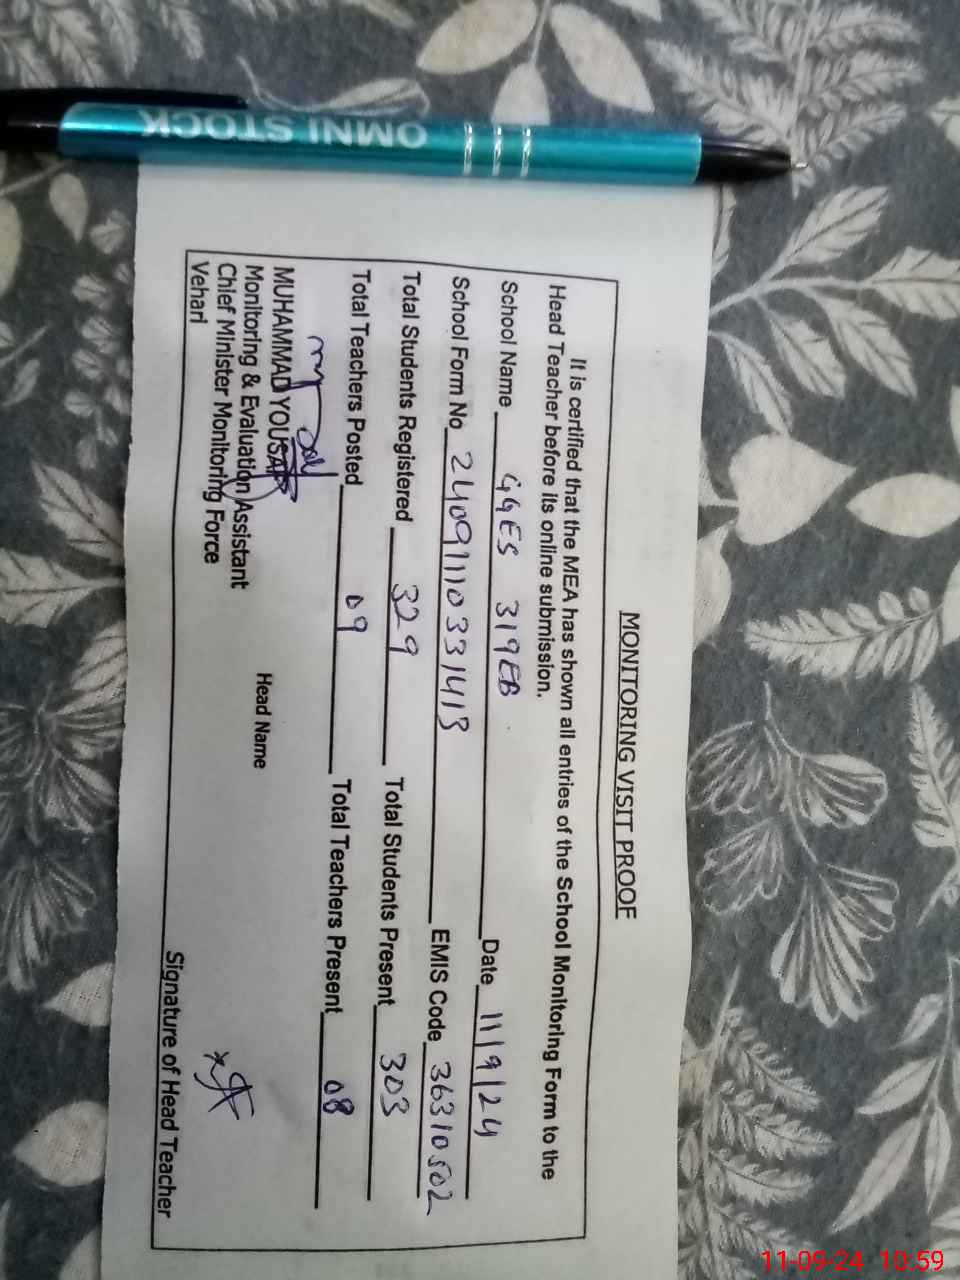 OMNI STOCK
MONITORING VISIT PROOF
It is certified that the MEA has shown all entries of the School Monitoring Form to the
Head Teacher before its online submission.
School Name GGES 319EB Date 11/9/24
School Form No 24091110331413 EMIS Code 36310502
Total Students Registered 329 Total Students Present 303
Total Teachers Posted 09 Total Teachers Present 08
MUHAMMAD YOUSAF
Monitoring & Evaluation Assistant Head Name
Chief Minister Monitoring Force
Vehari
Signature of Head Teacher
11-09-24 10:59